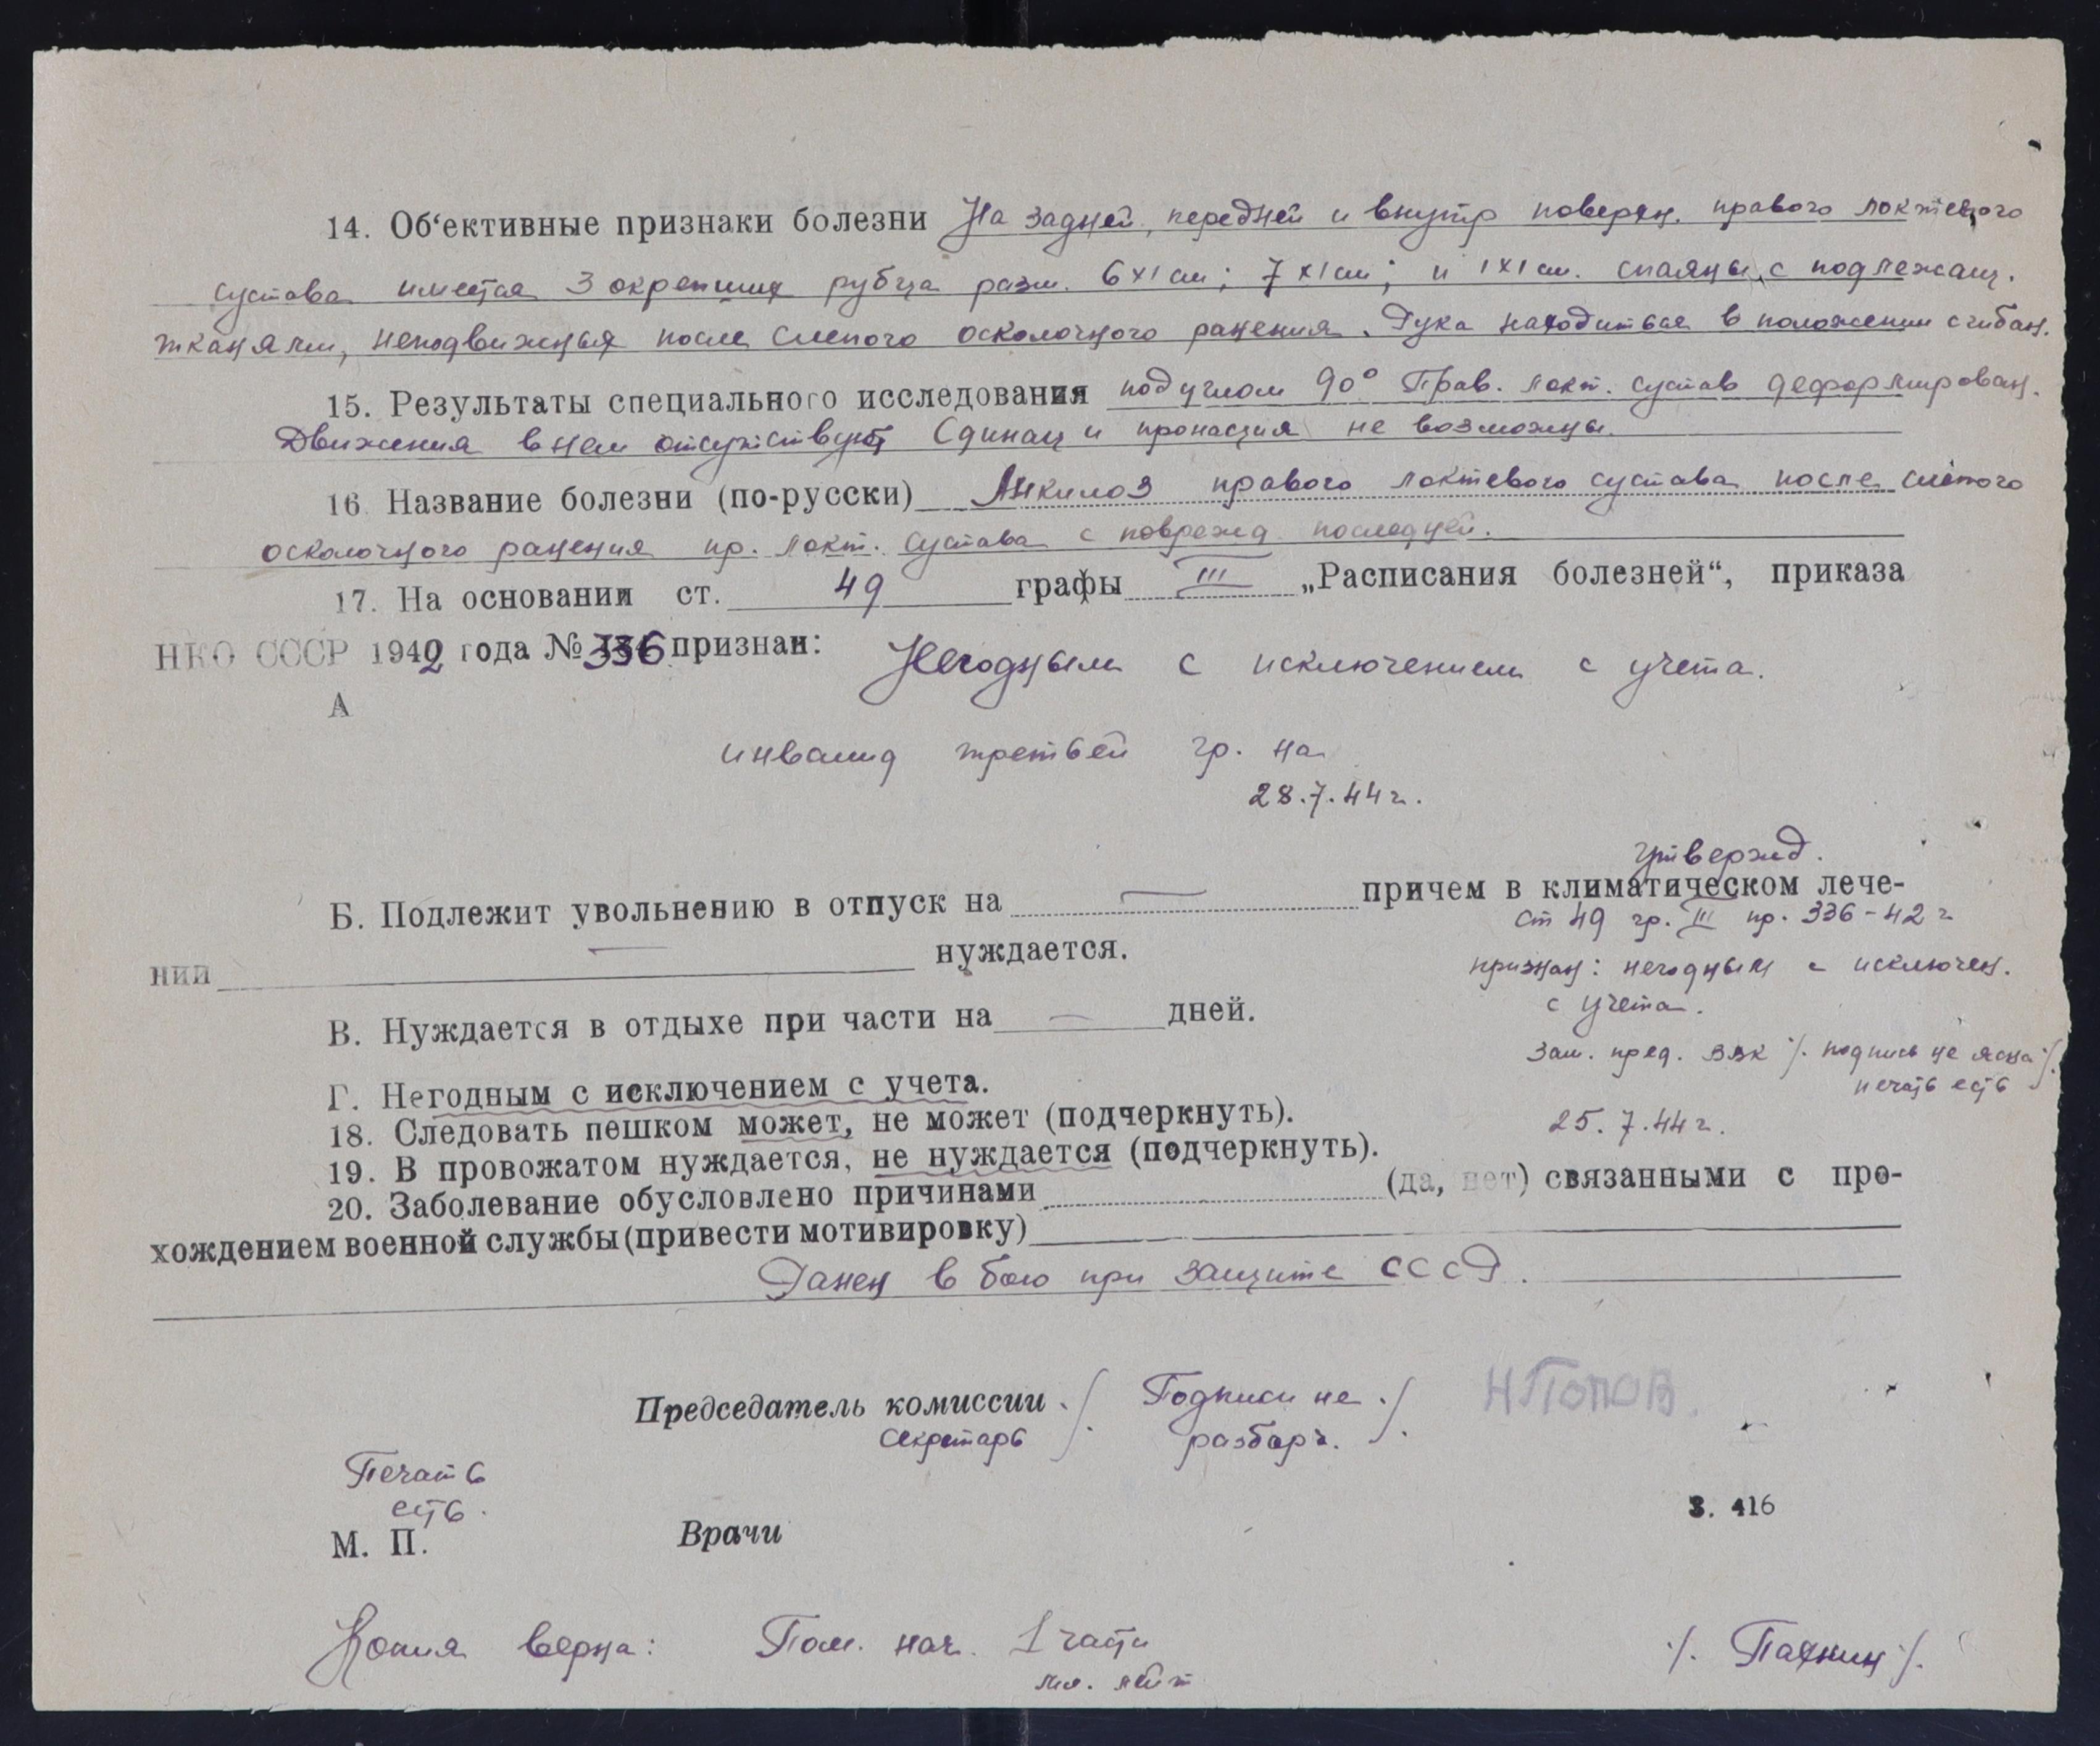 14. Об‘ективные признаки болезни На задней, передней и внутр поверхн. правого локтевого
сустава имеется 3 окрепших рубца разм. 6х1 см; 7х1 см; и 1х1 см. спаяны с подлежащ.
тканями, неподвижныя после слепого осколочного ранения. Рука находиться в положении сгибан.
15. Результаты специального исследования под углом 90° Прав. локт. сустав деформирован.
Движения в нем отсутствуют и пронация не возможны.
16. Название болезни (по-русски) Анкилоз правого локтевого сустава после слепого
осколочного ранения пр. локт. сустава с поврежд. последней.
17. На основании ст. 49 графы III „Расписания болезней“, приказа
НКО СССР 1942 года № 336 признан: Негодным с исключением с учета.
А
инвалид третьей гр. на
28.7.44 г.
Утвержд.
Б. Подлежит увольнению в отпуск на — причем в климатическом лече-
ст 49 гр. III пр. 336-42 г
нии — нуждается.
признан: негодным с исключен.
с учета.
В. Нуждается в отдыхе при части на — дней.
Зам. пред. ВВК /. подпись не ясна /.
печать есть
Г. Негодным с исключением с учета.
25.7.44 г.
18. Следовать пешком может, не может (подчеркнуть).
19. В провожатом нуждается, не нуждается (подчеркнуть).
20. Заболевание обусловлено причинами (да, нет) связанными с про-
хождением военной службы (привести мотивировку)
Ранен в бою при защите СССР.
Председатель комиссии ./. Подписи не ./. Н ПОПОВ.
секретарь разборч.
Печать
есть.
М. П.
Врачи
З. 416
Копия верна: Пом. нач. 1 части ./. Пахнин /.
мл. лейт